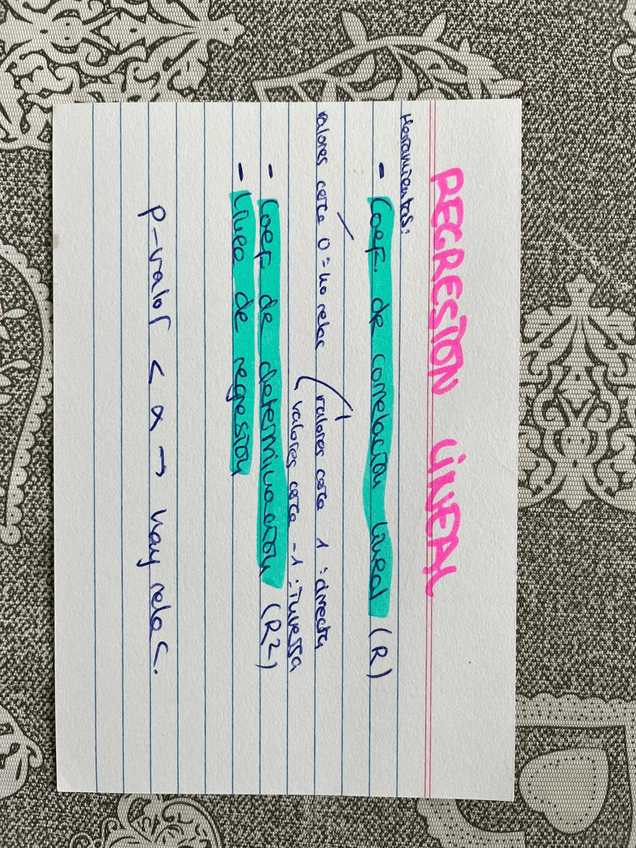 REGRESION LINEAL
Herramientas:
- Coef. de correlación lineal (R)
valores cerca 0 = no relac
valores cerca 1 : directa
valores cerca -1 : Inversa
- Coef. de determinación (R2)
- Línea de regresión
p-valor < α → hay relac.